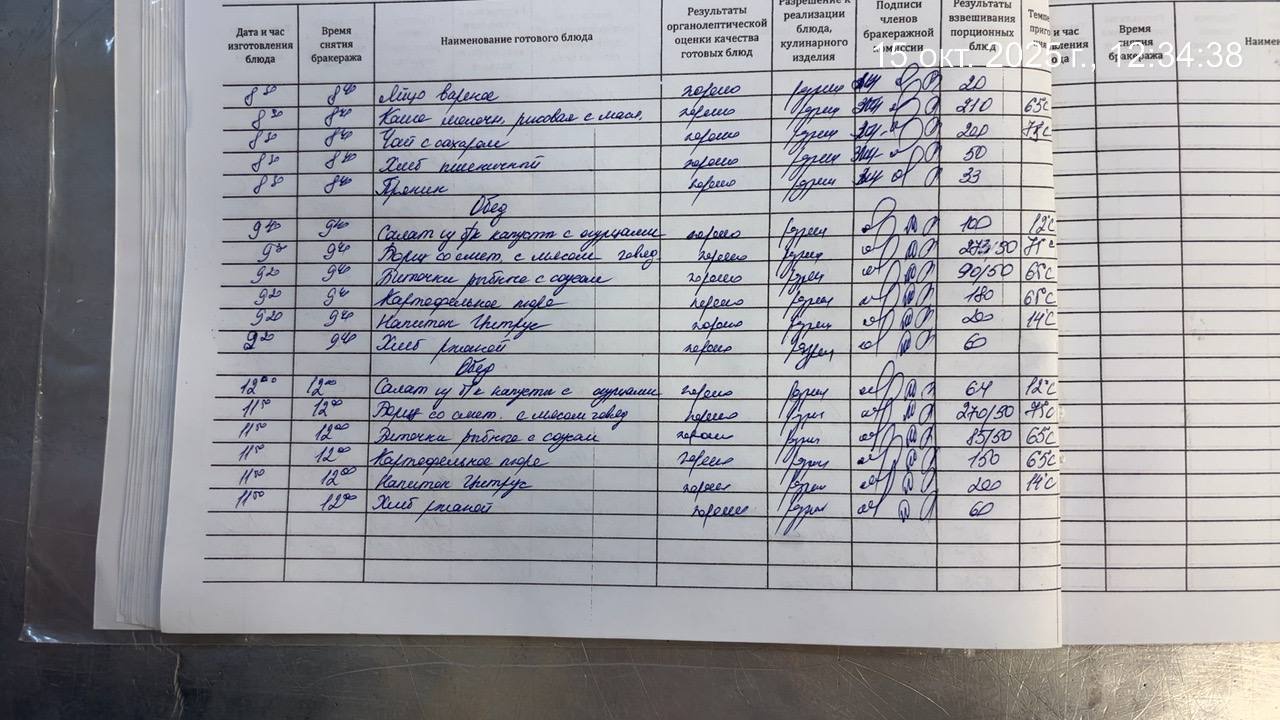 15 окт. 2025 г., 12:34:38
Дата и час изготовления блюда | Время снятия бракеража | Наименование готового блюда | Результаты органолептической оценки качества готовых блюд | Разрешение к реализации блюда, кулинарного изделия | Подписи членов бракеражной комиссии | Результаты взвешивания порционных блюд | Время снятия бракеража
8 30 | 8 40 | Яйцо вареное | хорошо | 20
8 30 | 8 40 | Каша молочн. рисовая с масл. | хорошо | 210 | 65С
8 30 | 8 40 | Чай с сахаром | хорошо | 200 | 75С
8 30 | 8 40 | Хлеб пшеничный | хорошо | 50
8 30 | 8 40 | Пряник | хорошо | 33
Обед
9 40 | Салат из б/к капусты с огурцами | хорошо | 100 | 12°С
9 40 | Борщ со смет. с мясом говяд. | хорошо
9 20 | 9 40 | Биточки рыбные с соусом | хорошо | 90/50 | 65°С
9 20 | 9 40 | Картофельное пюре | хорошо | 180 | 65°С
9 20 | 9 40 | Напиток Цитрус | хорошо | 200 | 14°С
9 20 | 9 40 | Хлеб ржаной | хорошо | 60
Обед
12 00 | 12 00 | Салат из б/к капусты с огурцами | хорошо | 64 | 12°С
11 50 | 12 00 | Борщ со смет. с мясом говяд | хорошо | 270/30 | 75С
11 50 | 12 00 | Биточки рыбные с соусом | хорошо | 85/50 | 65С
11 50 | 12 00 | Картофельное пюре | хорошо | 150 | 65С
11 50 | 12 00 | Напиток Цитрус | хорошо | 200 | 14°С
11 50 | 12 00 | Хлеб ржаной | хорошо | 60